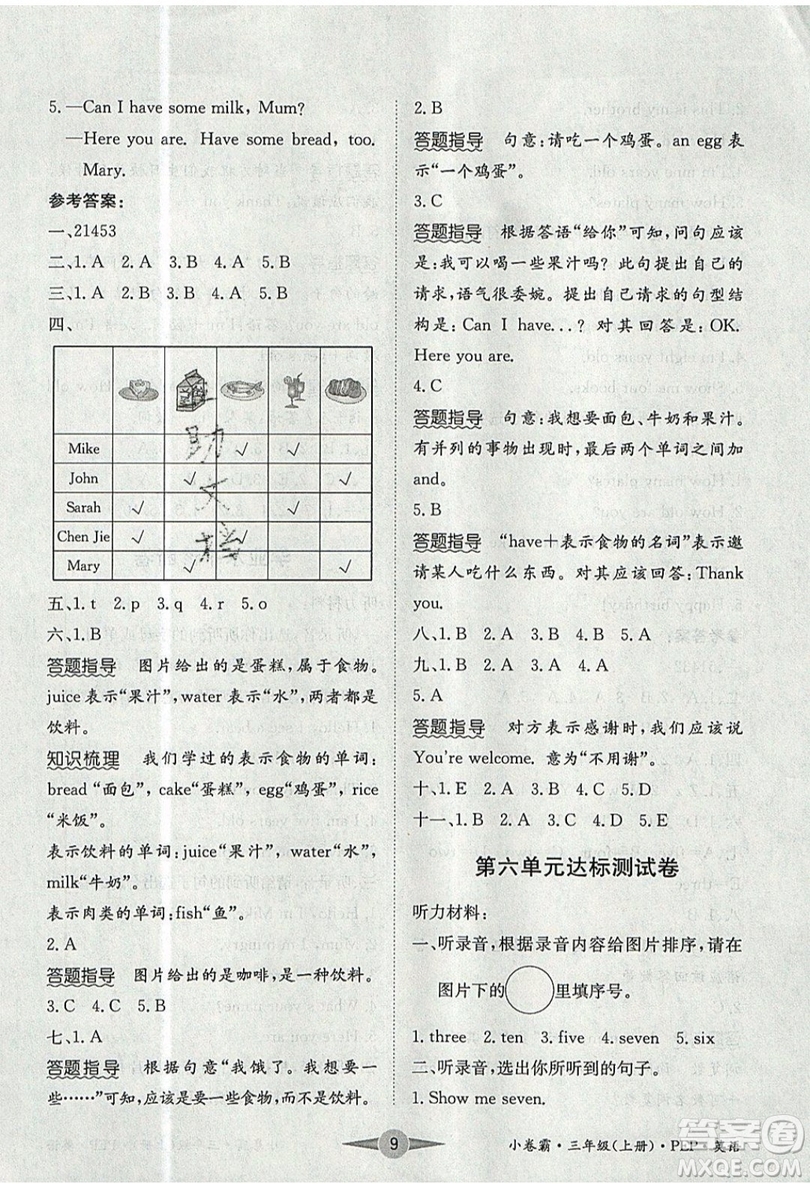 5. —Can I have some milk, Mum?
—Here you are. Have some bread, too.
Mary.
参考答案:
一、21453
二、1. A 2. A 3. B 4. B 5. A
三、1. A 2. B 3. A 4. B 5. B
四、
Mike ✓
John ✓
Sarah ✓ ✓
Chen Jie ✓
Mary ✓ ✓
助
大
档
五、1. t 2. p 3. q 4. r 5. o
六、1. B
答题指导 图片给出的是蛋糕,属于食物。
juice 表示“果汁”,water 表示“水”,两者都是
饮料。
知识梳理 我们学过的表示食物的单词:
bread “面包”,cake“蛋糕”,egg“鸡蛋”,rice
“米饭”。
表示饮料的单词:juice“果汁”,water“水”,
milk“牛奶”。
表示肉类的单词:fish“鱼”。
2. A
答题指导 图片给出的是咖啡,是一种饮料。
3. C 4. C 5. B
七、1. A
答题指导 根据句意“我饿了。我想要一
些……”可知,应该是要一些食物。
2. B
答题指导 句意:请吃一个鸡蛋。an egg 表
示“一个鸡蛋”。
3. C
答题指导 根据答语“给你”可知,问句应该
是:我可以喝一些果汁吗? 此句提出自己的
请求,语气很委婉。提出自己请求的句型结
构是:Can I have...? 对其回答是:OK.
Here you are.
4. C
答题指导 句意:我想要面包、牛奶和果汁。
有并列的事物出现时,最后两个单词之间加
and。
5. B
答题指导 “have+表示食物的名词”表示邀
请某人吃什么东西。对其应该回答:Thank
you.
八、1. B 2. A 3. B 4. B 5. A
九、1. B 2. A 3. A 4. A
5. A
答题指导 对方表示感谢时,我们应该说
You're welcome. 意为“不用谢”。
十、1. E 2. A 3. B 4. C 5. D
十一、1. B 2. A 3. C 4. D 5. E
第六单元达标测试卷
听力材料:
一、听录音,根据录音内容给图片排序,请在
图片下的 里填序号。
1. three 2. ten 3. five 4. seven 5. six
二、听录音,选出你所听到的句子。
1. Show me seven.
9
小卷霸·三年级(上册)·PEP·英语
答案圈
MXQE.COM